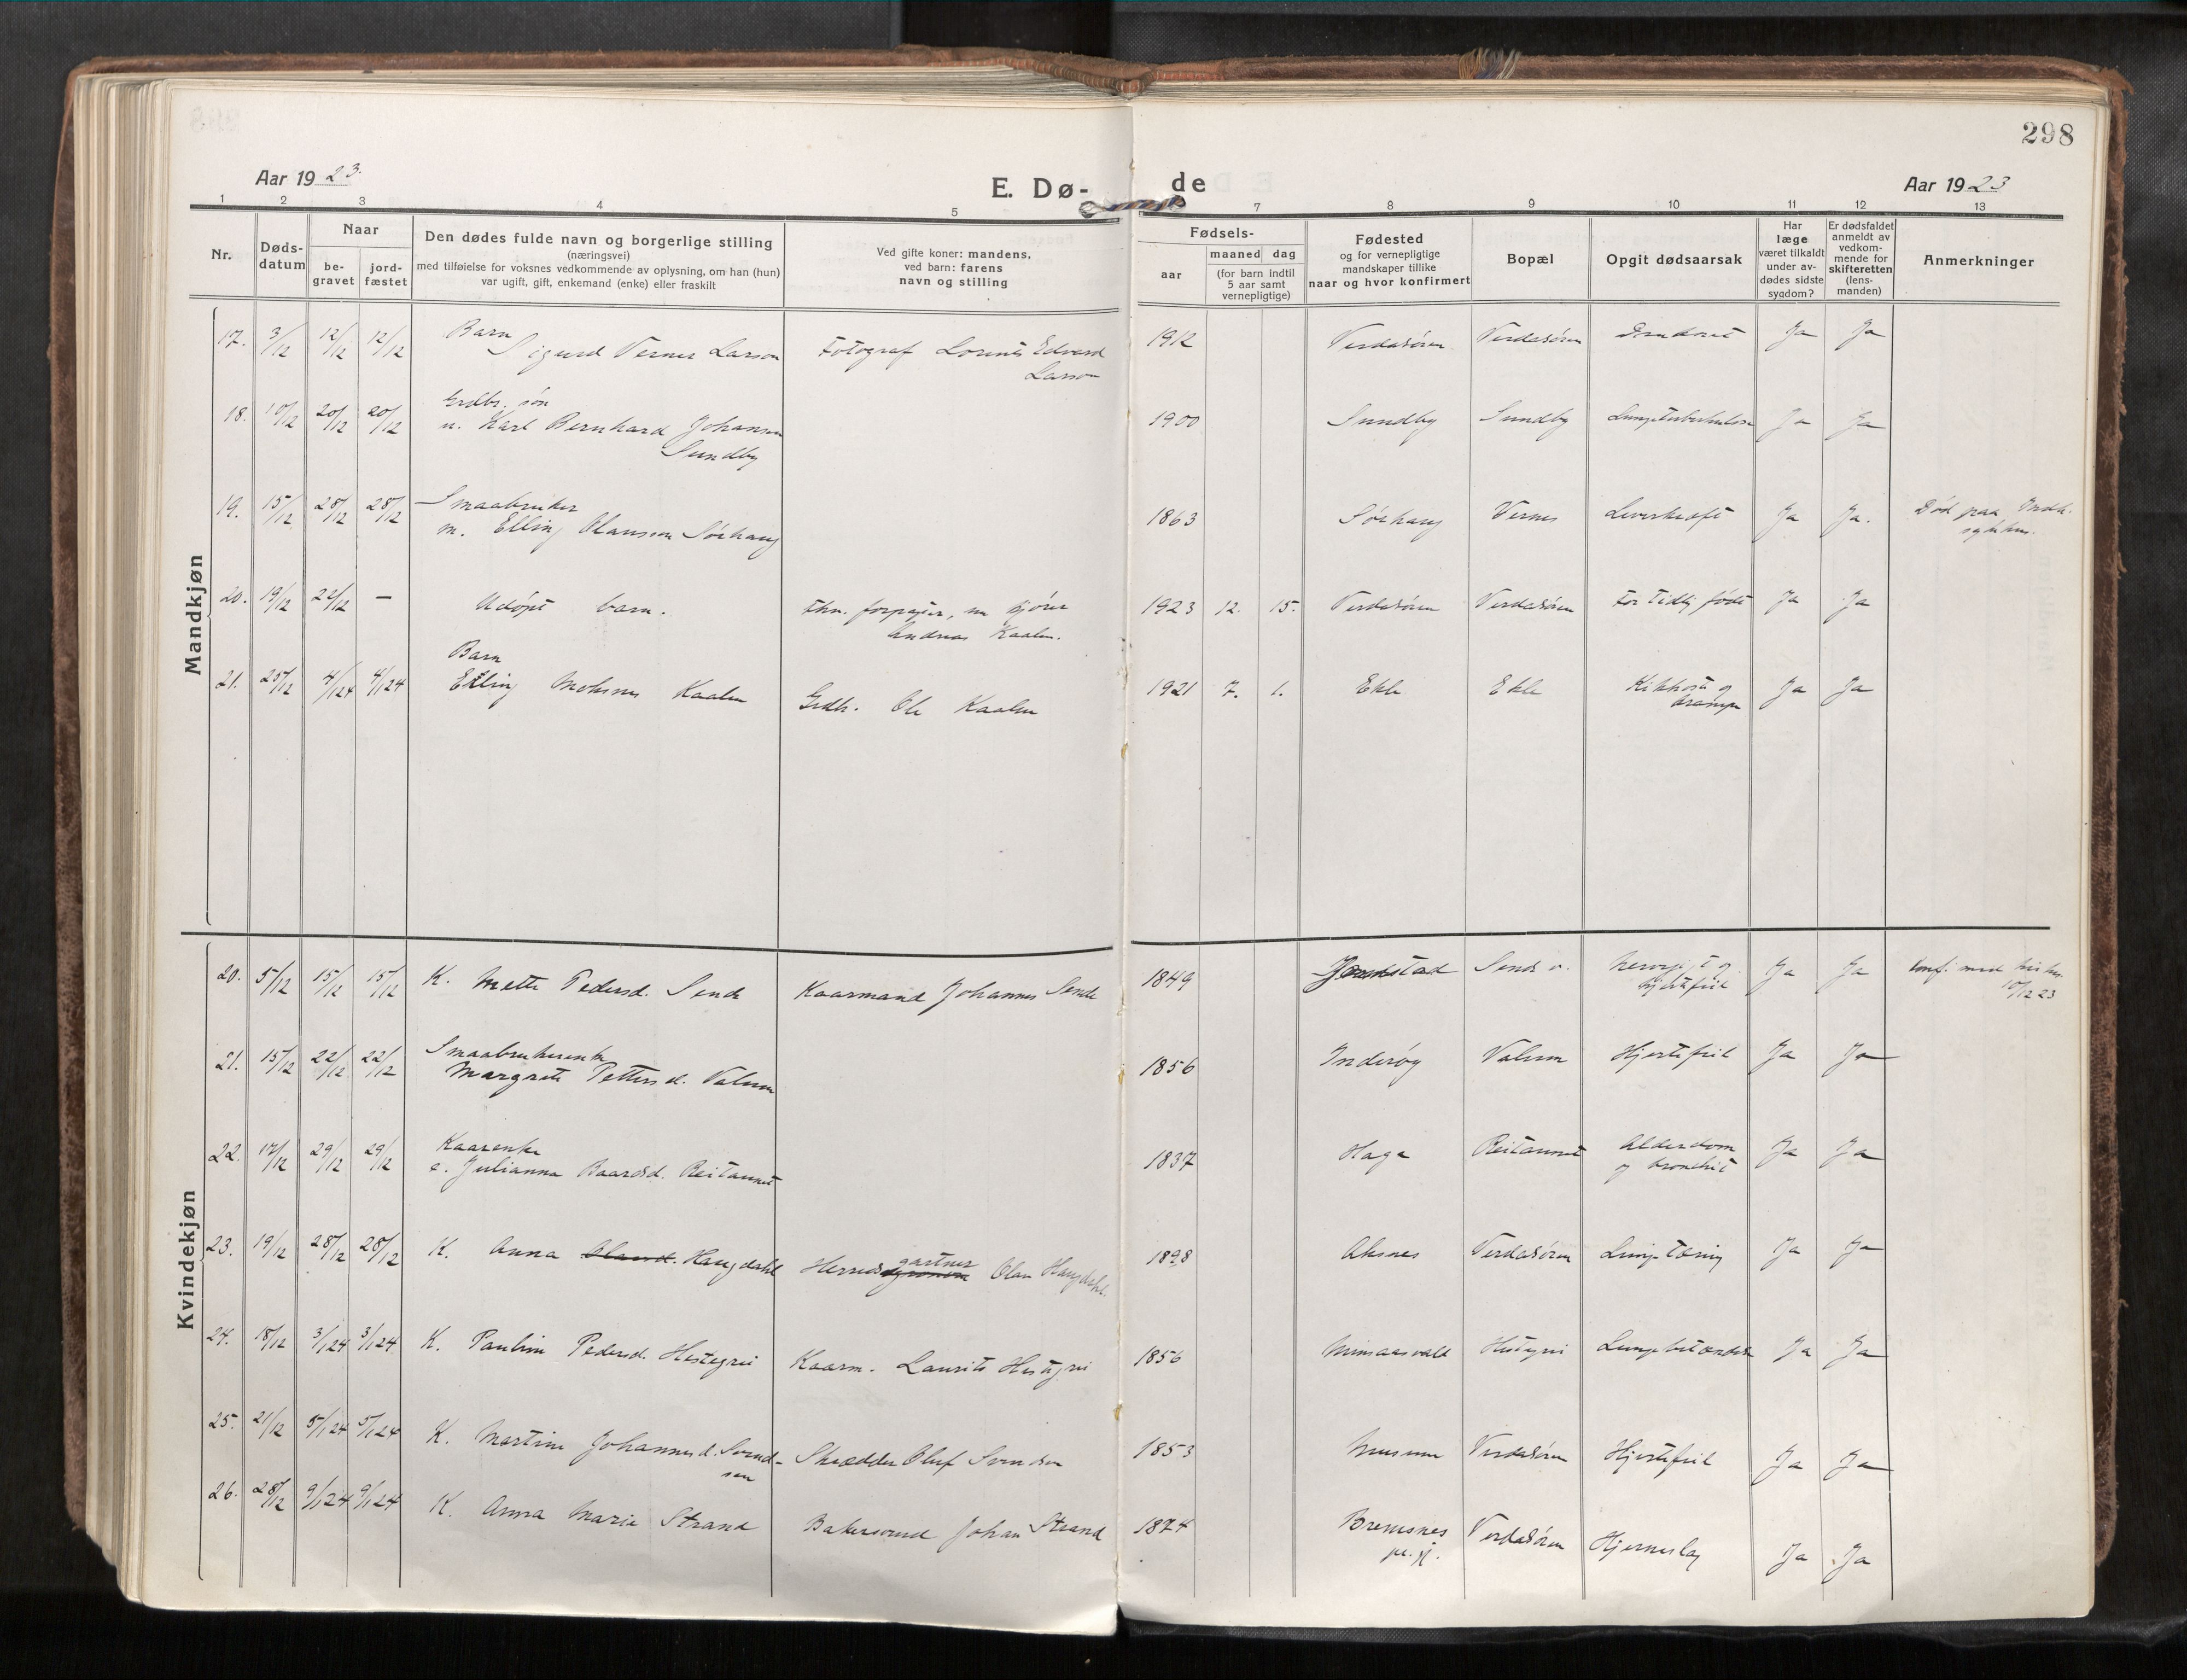 298
Aar 1923.
E. Dø-
de
Aar 1923
1 2 3 4 5 7 8 9 10 11 12 13
Nr.
Døds-
datum
Naar
be-
gravet
jord-
fæstet
Den dødes fulde navn og borgerlige stilling
(næringsvei)
med tilføielse for voksnes vedkommende av oplysning, om han (hun)
var ugift, gift, enkemand (enke) eller fraskilt
Ved gifte koner: mandens,
ved barn: farens
navn og stilling
Fødsels-
aar
maaned dag
(for barn indtil
5 aar samt
vernepligtige)
Fødested
og for vernepligtige
mandskaper tillike
naar og hvor konfirmert
Bopæl
Opgit dødsaarsak
Har
læge
været tilkaldt
under av-
dødes sidste
sygdom?
Er dødsfaldet
anmeldt av
vedkom-
mende for
skifteretten
(lens-
manden)
Anmerkninger
Mandkjøn
Barn
17. 3/12 12/12 12/12 Sigurd Verner Larson Fotograf Lorents Edvard 1912 Verdasören Verdasören Ja Ja
Larson
Grdbr. søn
18. 10/12 20/12 20/12 u. Karl Bernhard Johansen 1900 Sundby Sundby Lungetuberkulose Ja Ja
Sundby
Smaabruker
19. 15/12 28/12 28/12 m. Elling Olausson Sörhaug 1863 Sörhaug Vernes Leverkræft Ja Ja. Død paa Indh.
sykehus.
20. 19/12 22/12 — Udöpt barn. fhv. forpagter, nu kjörer 1923 12. 15. Verdasören Verdasören For tidlig född Ja Ja
Andreas Kaalen.
Barn
21. 25/12 4/1 24 4/1 24 Elling Kaalen Grdbr. Ole Kaalen 1921 7. 1. Ekle Ekle Kikhoste og Ja Ja
krampe
Kvindekjøn
20. 5/12 15/12 15/12 K. Mette Pedersd. Sende Kaarmand Johannes Sende 1849 Sende v. og Ja Ja
hjertefeil 10/12 23
Smaabrukerenke
21. 15/12 22/12 22/12 Margrete Pettersd. Valum 1856 Inderöy Valum Hjertefeil Ja Ja
Kaarenke
22. 17/12 29/12 29/12 e. Julianna Baardsd. Reitaunet 1837 Haga Reitaunet Alderdom Ja Ja
og bronchit
gartner
23. 19/12 28/12 28/12 K. Anna Olausd. Haugdahl Herreds Olav Haugdahl. 1898 Aksnes Verdasören Lungetæring Ja Ja
24. 18/12 3/1 24 3/1 24 K. Pauline Pedersd. Hestegrei Kaarm. Laurits Hestegrei 1856 Minsaasvald Hestegrei Lungebetændelse Ja Ja
25. 21/12 5/1 24 5/1 24 K. Martine Johannesd. Svend- Skrædder Oluf Svendsen 1853 Musum Verdasören Hjertefeil Ja Ja
sen
26. 28/12 9/1 24 9/1 24 K. Anna Marie Strand Bakersvend Johan Strand 1874 Bremsnes Verdasören Hjerneslag Ja Ja
pr.gj.